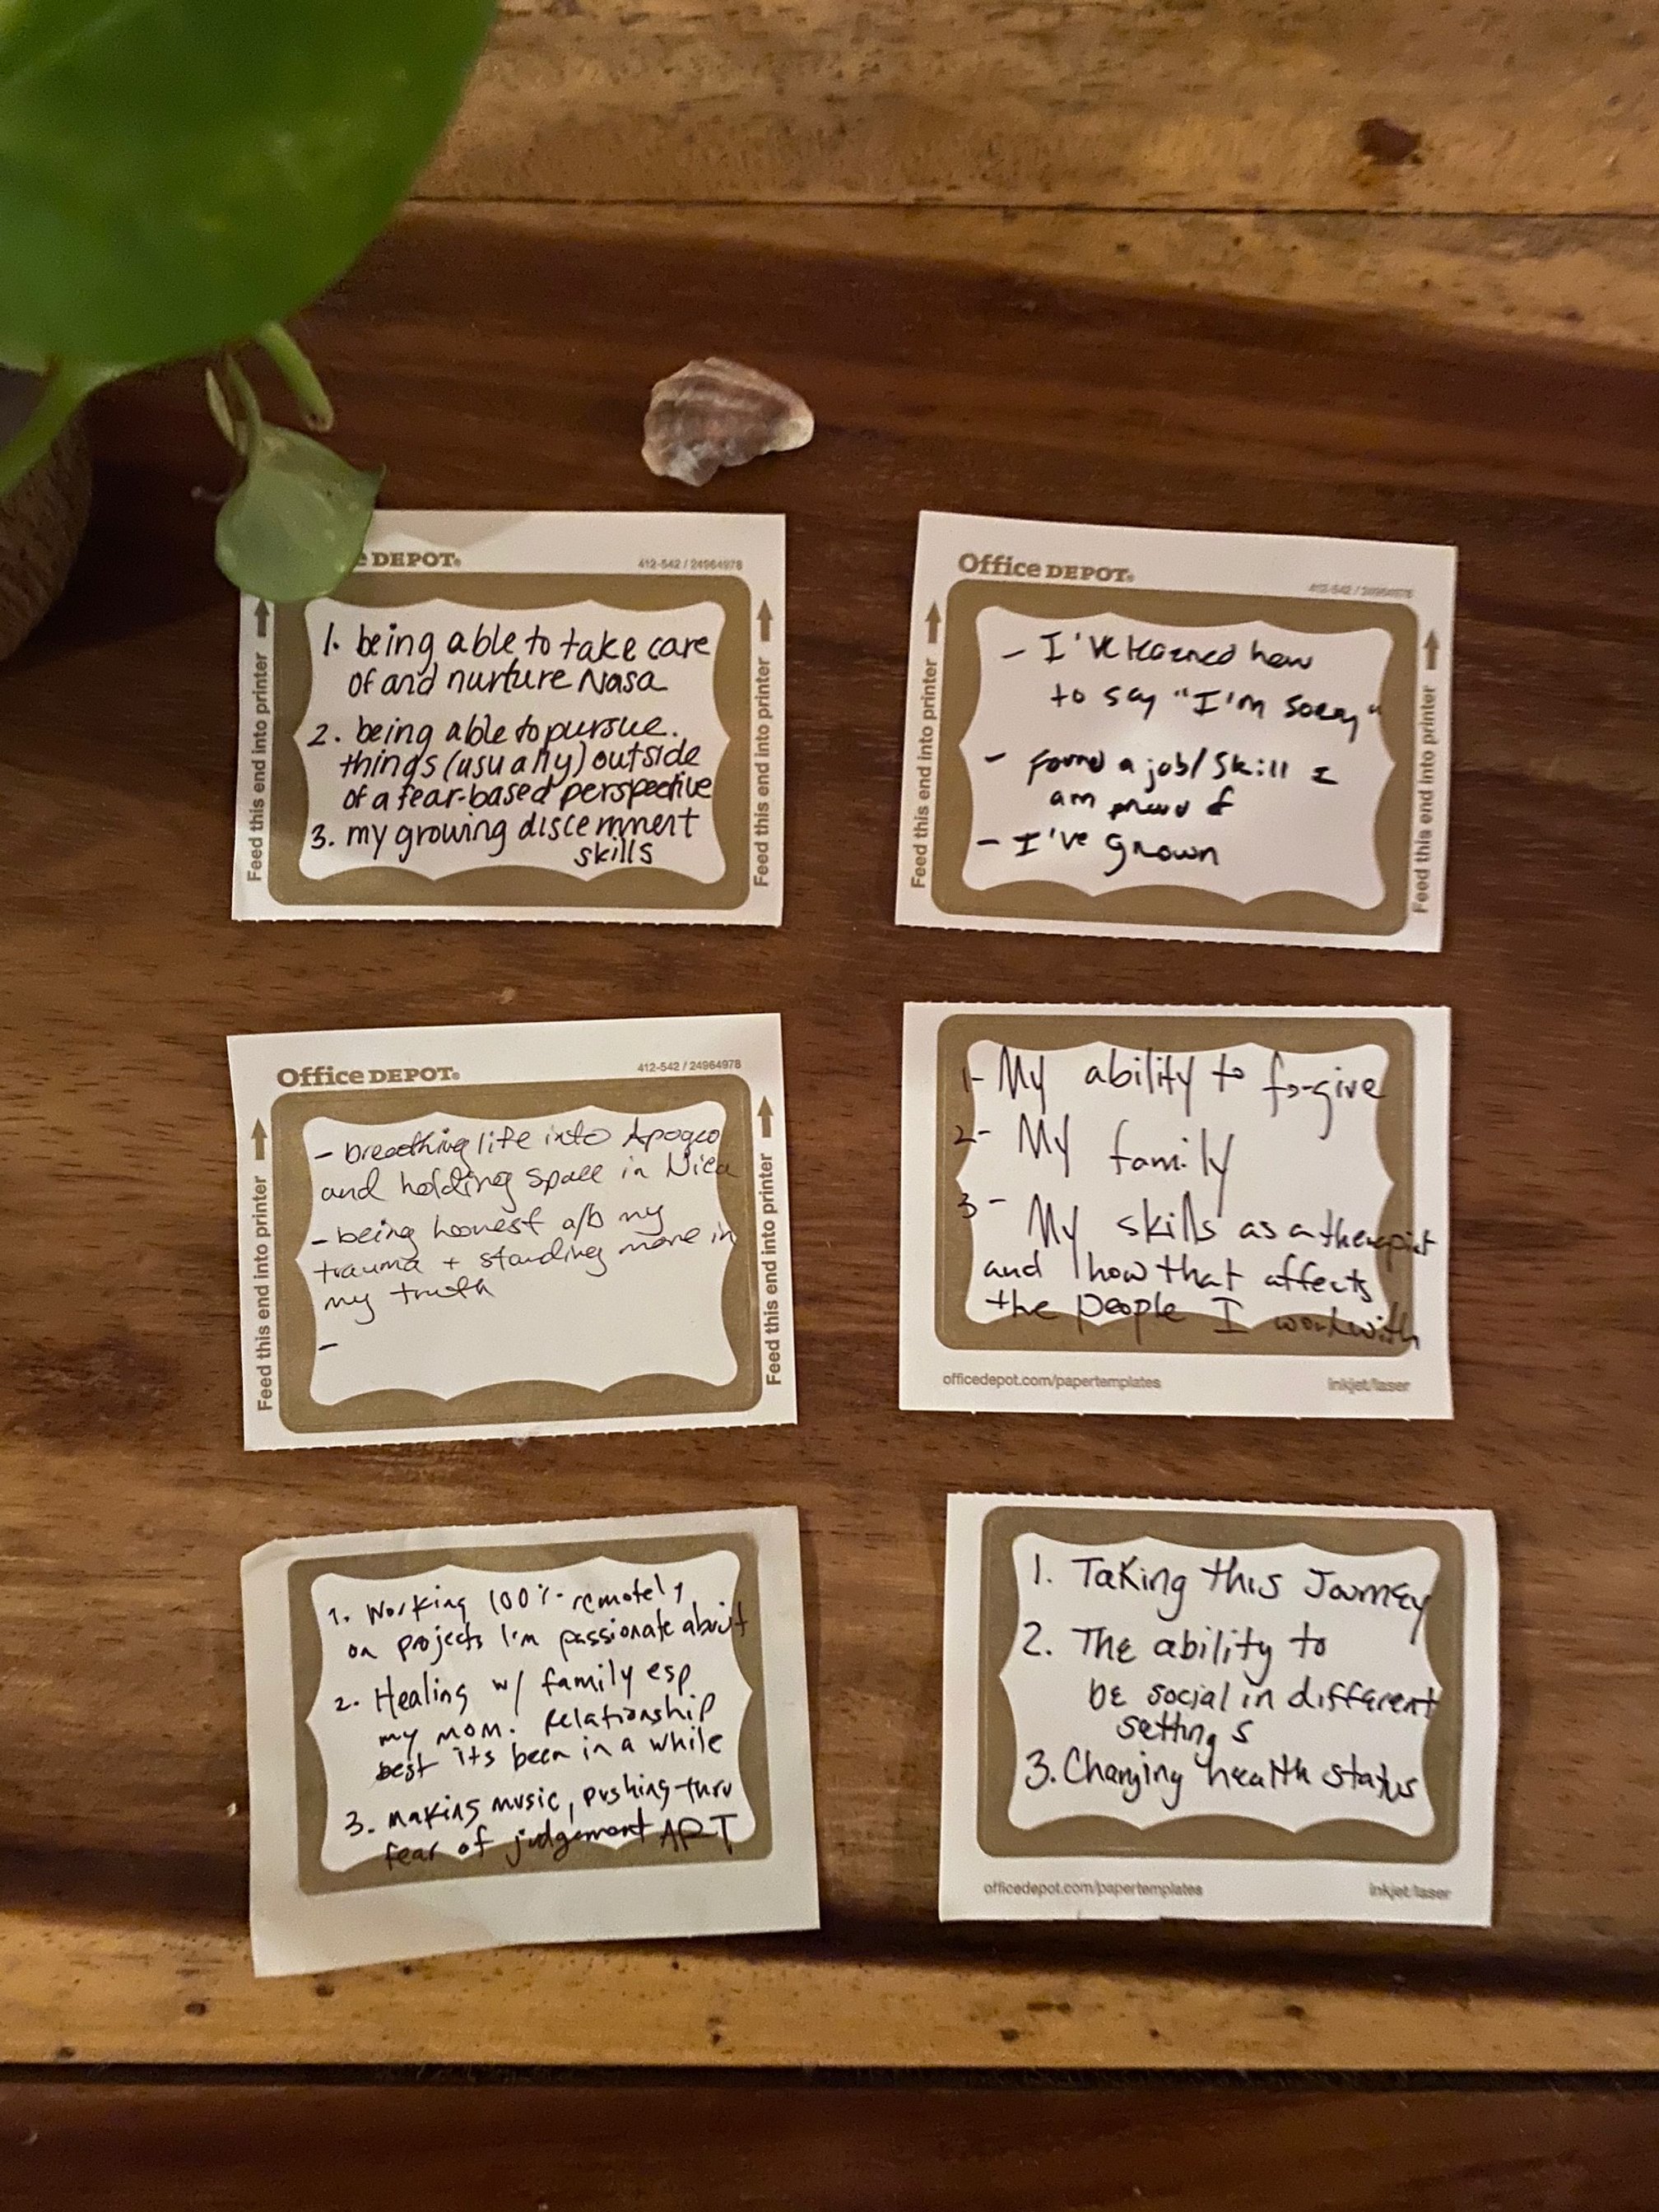 e DEPOT®
412-542 / 24964978
Feed this end into printer
1. being able to take care
of and nurture Nasa
2. being able to pursue.
things (usually) outside
of a fear-based perspective
3. my growing discernment
skills
Feed this end into printer
Office DEPOT®
412-542 / 24964978
Feed this end into printer
- I've learned how
to say "I'm sorry"
- found a job/skill I
am proud of
- I've grown
Feed this end into printer
Office DEPOT®
412-542 / 24964978
Feed this end into printer
- breathing life into Apogeo
and holding space in Nica
- being honest a/b my
trauma + standing more in
my truth
-
Feed this end into printer
1- My ability to forgive
2- My family
3- My skills as a therapist
and how that affects
the people I work with
officedepot.com/papertemplates
inkjet/laser
1. Working 100% remotely
on projects I'm passionate about
2. Healing w/ family esp
my mom. Relationship
best its been in a while
3. making music, pushing thru
fear of judgement ART
1. Taking this Journey
2. The ability to
be social in different
settings
3. Changing health status
officedepot.com/papertemplates
inkjet/laser